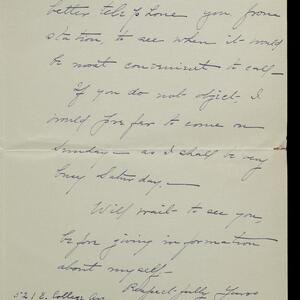 better telephone you, from
station, to see when it would
be most convenient to call—
If you do not object, I
would prefer to come on
Sunday — as I shall be very
busy Saturday.—
Will wait to see you,
before giving information
about myself.
Respectfully Yours
521 E. College Ave